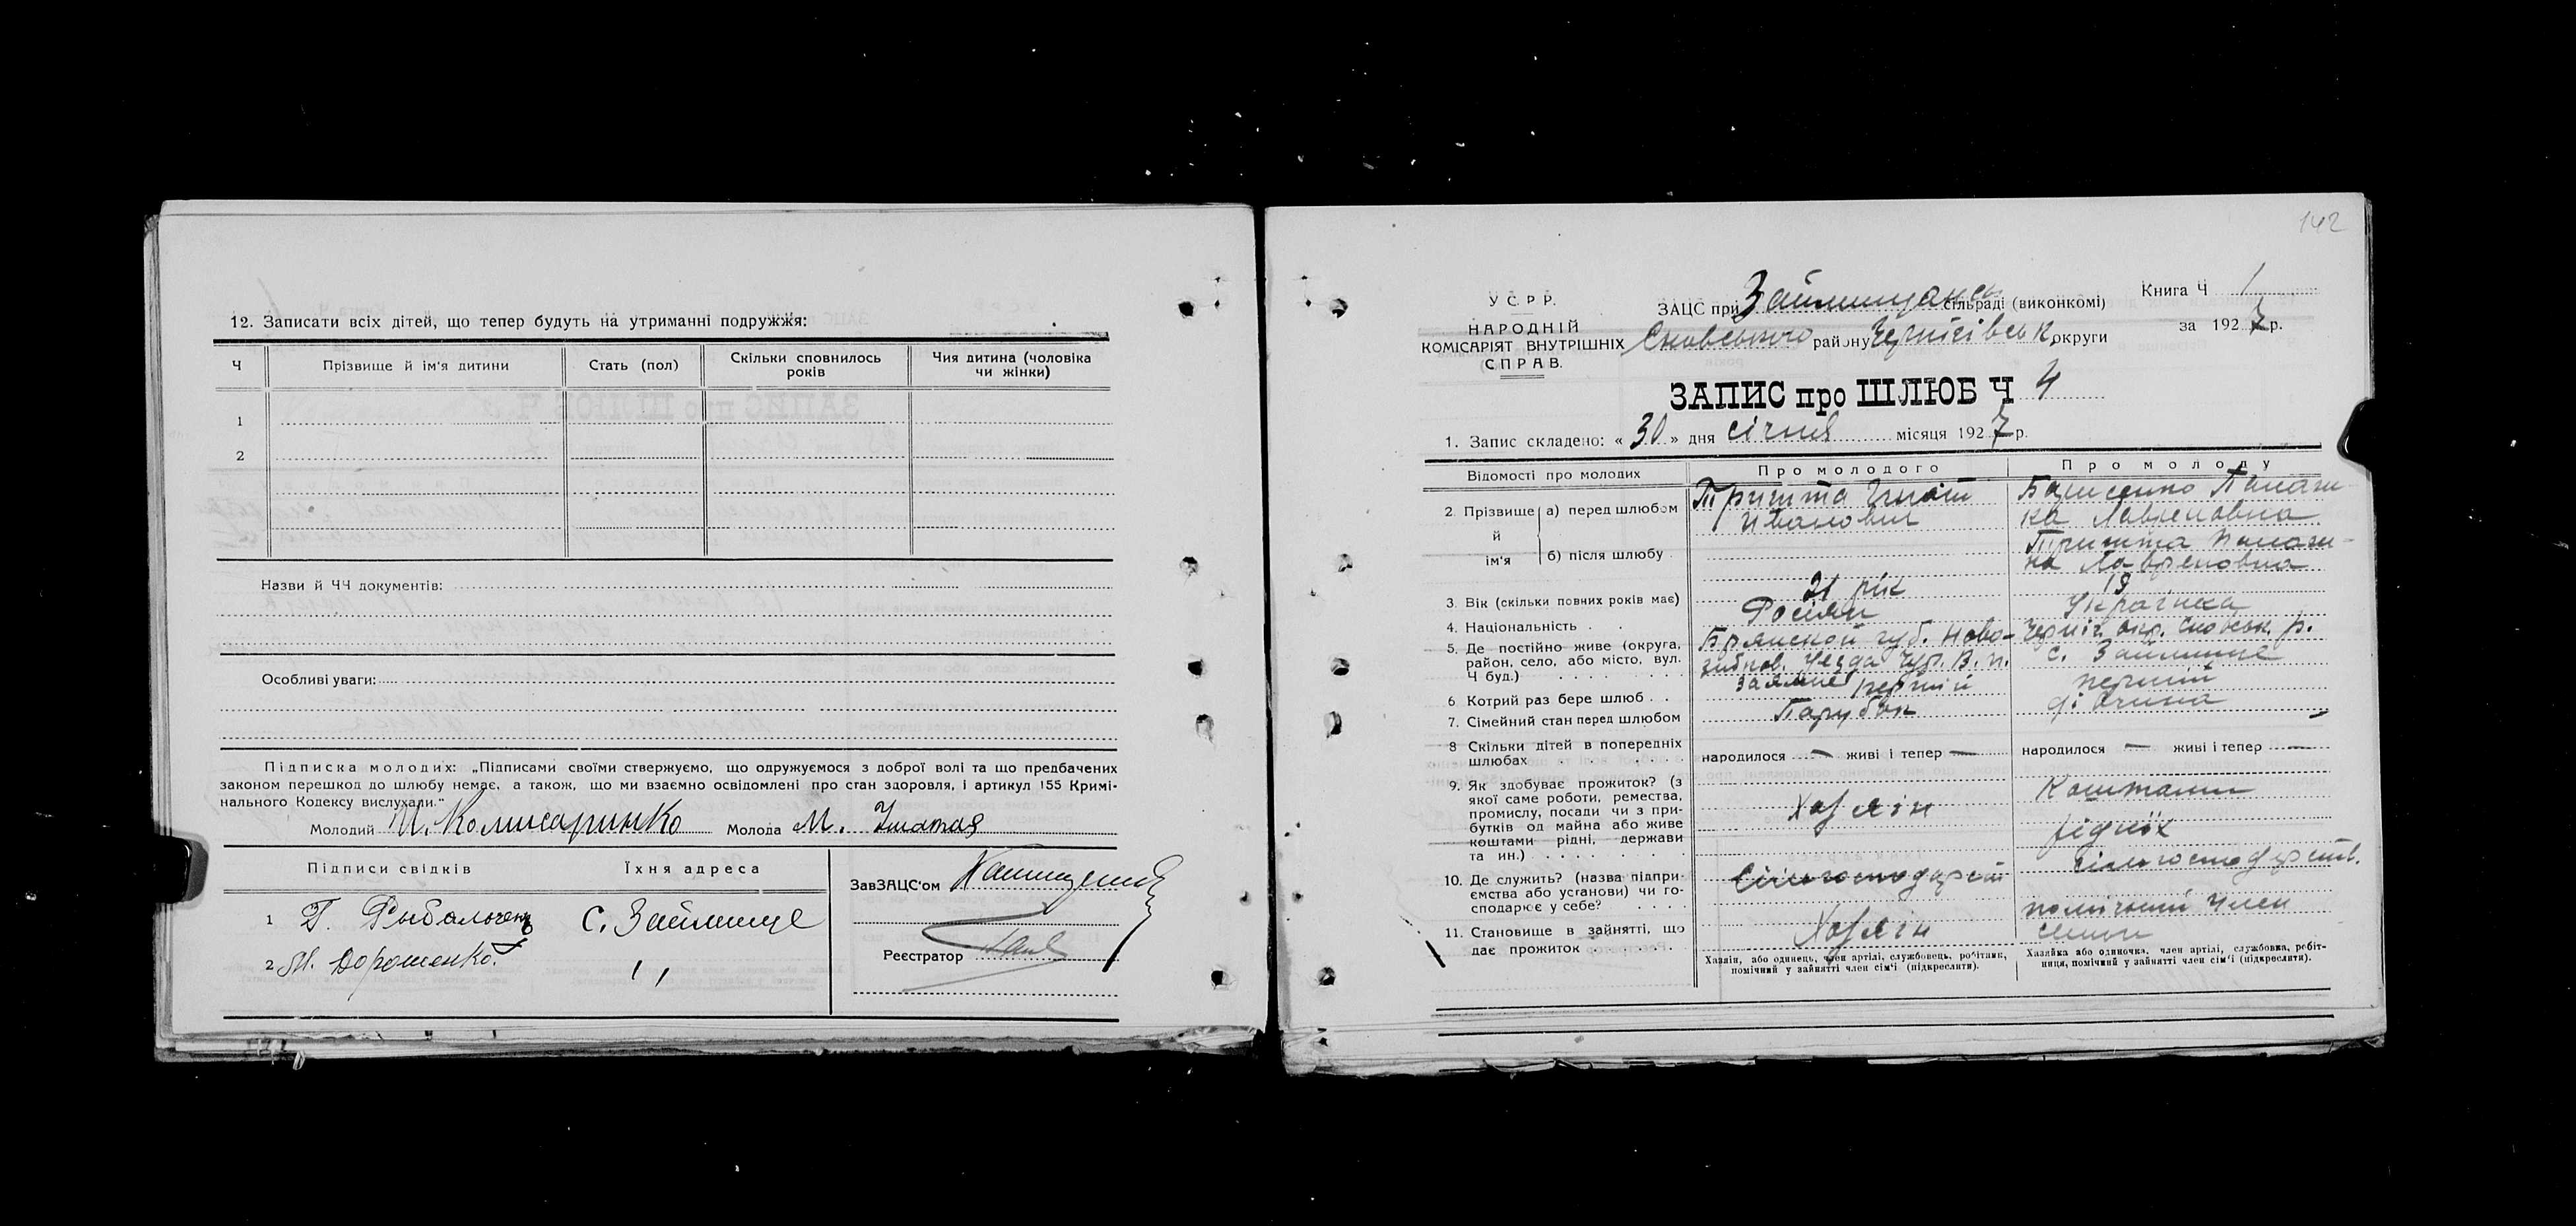 12. Записати всіх дітей, що тепер будуть на утриманні подружжя:
Ч Прізвище й ім'я дитини Стать (пол) Скільки сповнилось років Чия дитина (чоловіка чи жінки)
1
2
Назви й ЧЧ документів:
Особливі уваги:
Підписка молодих: „Підписами своїми ствержуємо, що одружуємося з доброї волі та що предбачених
законом перешкод до шлюбу немає, а також, що ми взаємно освідомлені про стан здоров'я, і артикул 155 Кримі-
нального Кодексу вислухали."
Молодий Молода М.
Підписи свідків Їхня адреса
ЗавЗАЦС'ом
1 с. Займище
2 М. Дорошенко. ' '
Реєстратор
142
У С. Р Р.
НАРОДНІЙ
КОМІСАРІЯТ ВНУТРІШНІХ
СПРАВ.
ЗАЦС при Займищанськ сільраді (виконкомі)
Сновського району Чернігівськ округи
Книга Ч 1
за 1927 р.
ЗАПИС про ШЛЮБ Ч 4
1. Запис складено: « 30 » дня січня місяця 1927 р.
Відомості про молодих Про молодого Про молоду
2 Прізвище й ім'я
а) перед шлюбом
Ивановил
Лавреновна
б) після шлюбу
Лавреновна
3. Вік (скільки повних років має) 21 рік 19
4. Національність Росіян Українка
5. Де постійно живе (округа,
район, село, або місто, вул.
Ч буд.)
Брянской губ. Ново-
Черніг. окр. Сновськ. р.
с. Займище
6. Котрий раз бере шлюб перший перший
7. Сімейний стан перед шлюбом Парубок дівчина
8 Скільки дітей в попередніх
шлюбах
народилося — живі і тепер — народилося — живі і тепер —
9. Як здобуває прожиток? (з
якої саме роботи, ремества,
промислу, посади чи з при-
бутків од майна або живе
коштами рідні, держави
та ин.)
Хазяін
Коштами
рідніх
10. Де служить? (назва підпри-
ємства або установи) чи го-
сподарює у себе?
Сільгосподарст
сільгосподарств.
11. Становище в зайнятті, що
дає прожиток
Хазяін
помічний член
семьи
Хазяін, або одинець, член артілі, службовець, робітник,
помічний у зайнятті член сім'ї (підкреслити).
Хазяйка або одиночка, член артілі, службовка, робіт-
ниця, помічний у зайнятті член сім'ї (підкреслити).